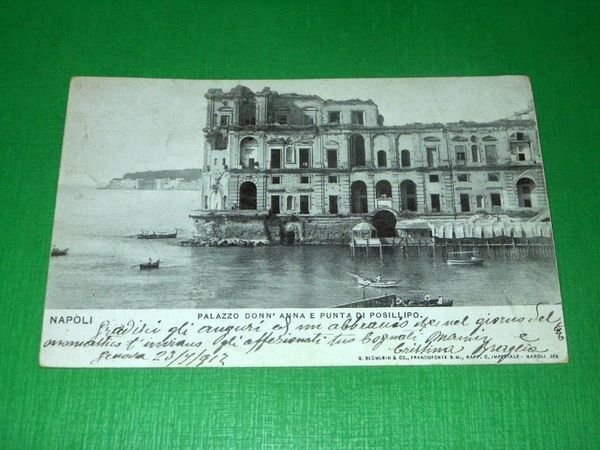 NAPÒLI
PALAZZO DONN' ANNA E PUNTA DI POSILLIPO.
Gradisci gli auguri ed un abbraccio che nel giorno del tuo
onomastico t'inviano gli affezionati tuoi Cognati
Genova 23/7/912 Cristina
G. BLÜMLEIN & CO., FRANCOFORTE S.M., RAPP. C. IMPERIALE - NAPOLI